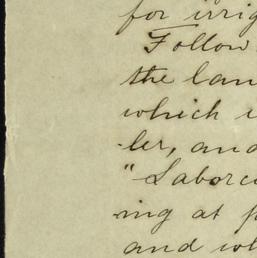 for irrig
Follow
the lan
which i
ler, and
"Labor
ing at
and wh